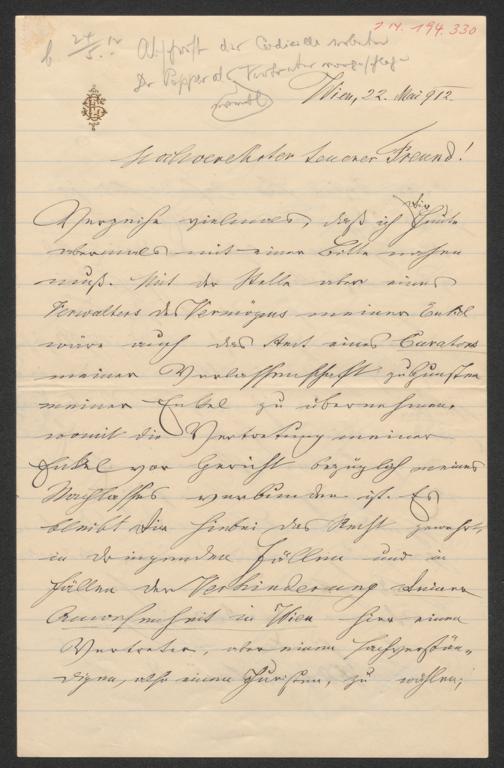 I N. 194.330
b 24/5. 12 Abschrift der Codicille
Dr Popper als Vertreter vorgeschlagen
Wien, 22. Mai 912.
Hochverehrter teuerer Freund!
Verzeihe vielmals, daß ich Dir heute
abermals mit einer Bitte nahen
muß. Mit der Stelle aber eines
Verwalters des Vermögens meiner Enkel
wäre auch das Amt eines Curators
meiner Verlassenschaft zugunsten
meiner Enkel zu übernehmen,
womit die Vertretung meiner
Enkel vor Gericht bezüglich meines
Nachlasses verbunden ist. Es
bleibt Dir hiebei das Recht gewahrt,
in dringenden Fällen und in
Fällen der Verhinderung Deiner
Anwesenheit in Wien hier einen
Vertreter, aber einen Sachverstän-
digen, also einen Juristen, zu wählen;